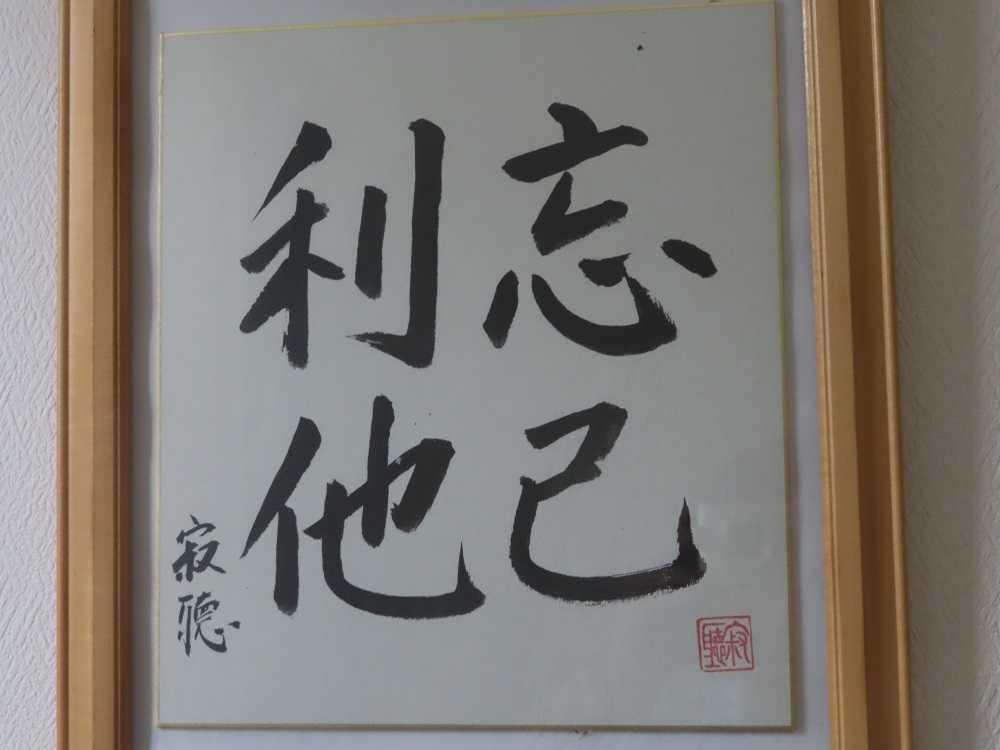 忘己
利他
寂聴
寂聴